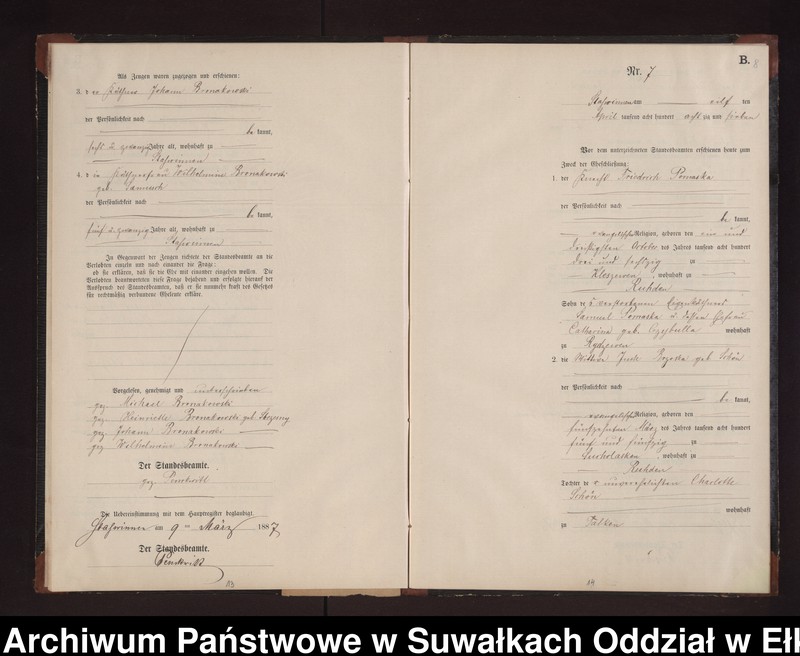 Als Zeugen waren zugezogen und erschienen:
3. der Käthner Johann Bronakowski
der Persönlichkeit nach
be kannt,
sechs u. zwanzig Jahre alt, wohnhaft zu
Staswinnen
4. die Käthnerfrau Wilhelmine Bronakowski
geb.
der Persönlichkeit nach
be kannt,
fünf u. zwanzig Jahre alt, wohnhaft zu
Staswinnen
In Gegenwart der Zeugen richtete der Standesbeamte an die
Verlobten einzeln und nach einander die Frage:
ob sie erklären, daß sie die Ehe mit einander eingehen wollen. Die
Verlobten beantworteten diese Frage bejahend und erfolgte hierauf der
Ausspruch des Standesbeamten, daß er sie nunmehr kraft des Gesetzes
für rechtmäßig verbundene Eheleute erkläre.
Vorgelesen, genehmigt und unterschrieben
gez. Michael Bronakowski
gez. Heinriette Bronakowski geb.
gez. Johann Bronakowski
gez. Wilhelmine Bronakowski
Der Standesbeamte.
gez.
Die Uebereinstimmung mit dem Hauptregister beglaubigt.
Staswinnen am 9ten März 1887
Der Standesbeamte.
B.
Nr. 7
Staswinnen am elf ten
April tausend acht hundert acht zig und sieben
Vor dem unterzeichneten Standesbeamten erschienen heute zum
Zweck der Eheschließung:
1. der Knecht Friedrich Pomaska
der Persönlichkeit nach
be kannt,
evangelischer Religion, geboren den ein und
dreißigsten October des Jahres tausend acht hundert
drei und sechzig zu
, wohnhaft zu
Ruhden
Sohn des verstorbenen
Samuel Pomaska u. dessen Ehefrau
Catharina geb. Czybulla wohnhaft
zu Rydzewen
2. die Wittwe geb. Schön
der Persönlichkeit nach
be kannt,
evangelischer Religion, geboren den
fünfzehnten März des Jahres tausend acht hundert
fünf und fünfzig zu
, wohnhaft zu
Ruhden
Tochter der unverehelichten Charlotte
Schön
wohnhaft
zu Talken
Archiwum Państwowe w Suwałkach Oddział w Ełk